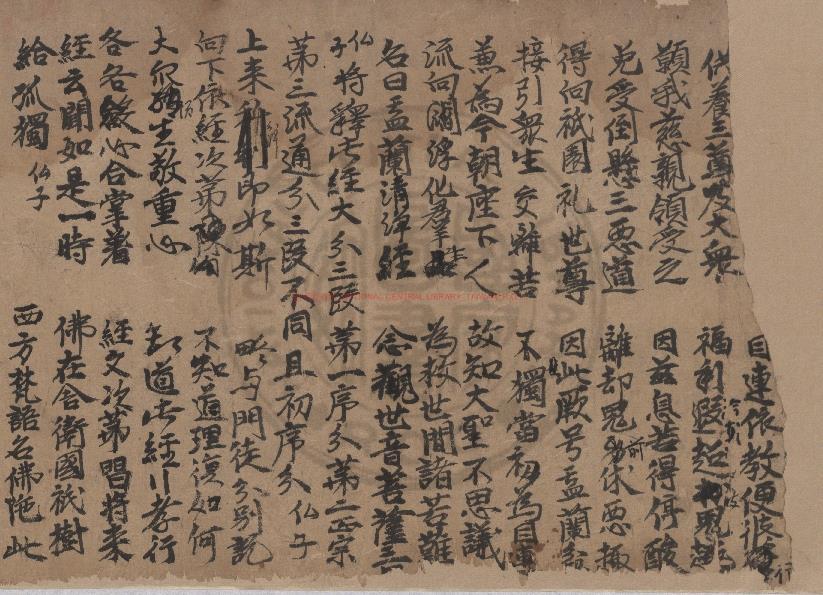 目連依教便
供養三尊及大衆 福利
願我慈親領受之 因茲息苦得停酸
免受倒懸三惡道 離却鬼前休惡趣
得向祇園礼世尊 因此厥号盂蘭
接引衆生交離苦 不獨當初為目連
兼為今朝座下人 故知大聖不思議
流向閻浮化羣生 為救世間諸苦難
名曰盂蘭清淨經 念觀世音菩薩
仏子將釋此經大分三段第一序分第二正宗
第三流通分三段不同且初序分仏子
上来科判即如斯 略与門徒分別說
向下依經次第陳 不知道理復如何
大衆生敬重心 道此經行孝行
各各斂心合掌著 經文次第唱將来
經云聞如是一時 佛在舍衛國祇樹
給孤獨仏子 西方梵語名佛陁此
NATIONAL CENTRAL LIBRARY, TAIWAN